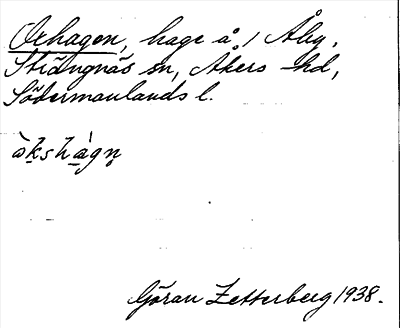 Oxhagen, hage å / Åby,
Strängnäs sn, Åkers hd,
Södermanlands l.
òkshàgn̥
Göran Zetterberg 1938.